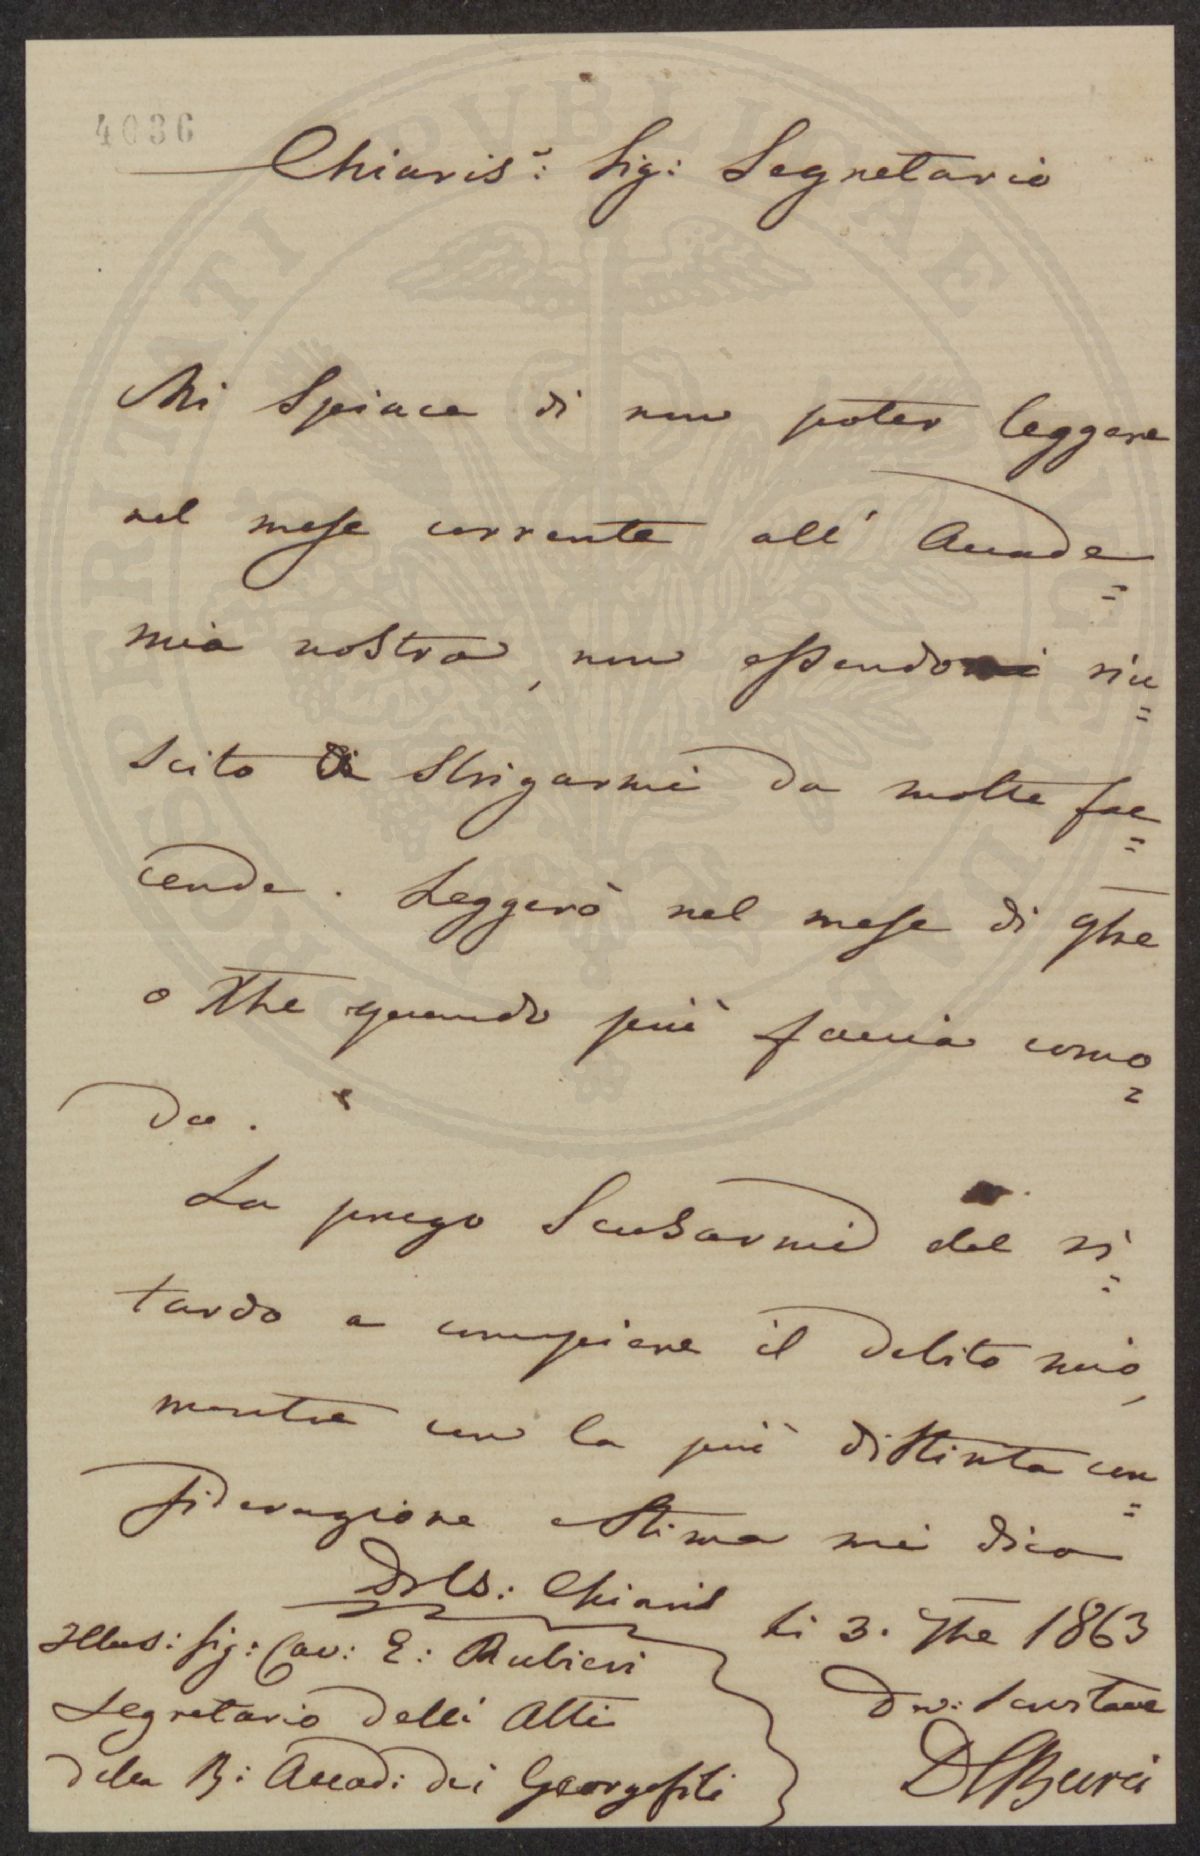 4036
Chiaris.: Sig: Segretario
Mi Spiace di non poter leggere
nel mese corrente all' Accade=
mia nostra, non essendo riu=
scito di Strigarmi da molte fac=
cende. Leggerò nel mese di 9bre
o Xbre quando più faccia como=
do.
La prego Scusarmi del ri=
tardo a compiere il debito mio,
mentre con la più distinta con=
siderazione e Stima mi dico
Di VS: Chiaris
Li 3. 7bre 1863
Illus: Sig: Cav: E: Rubieri
Segretario delli Atti
della R: Accad: dei Georgofili
Dev:
CBurci
PROSPERITATI PUBLICAE AUGENDAE